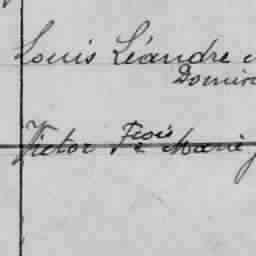 Louis Léandre
Domin
Frois
Victor Fe Marie